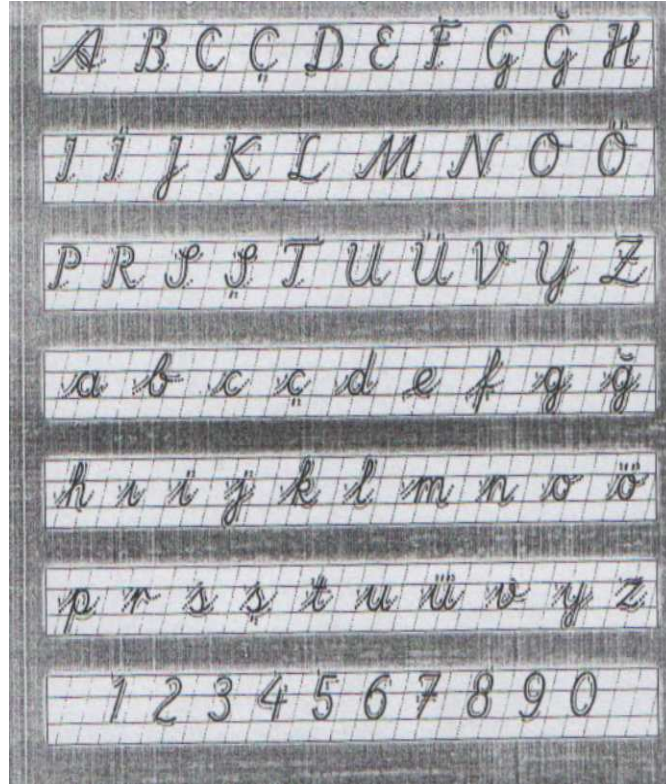 A B C Ç D E F G Ğ H
I İ J K L M N O Ö
P R S Ş T U Ü V Y Z
a b c ç d e f g ğ
h ı i j k l m n o ö
p r s ş t u ü v y z
1 2 3 4 5 6 7 8 9 0